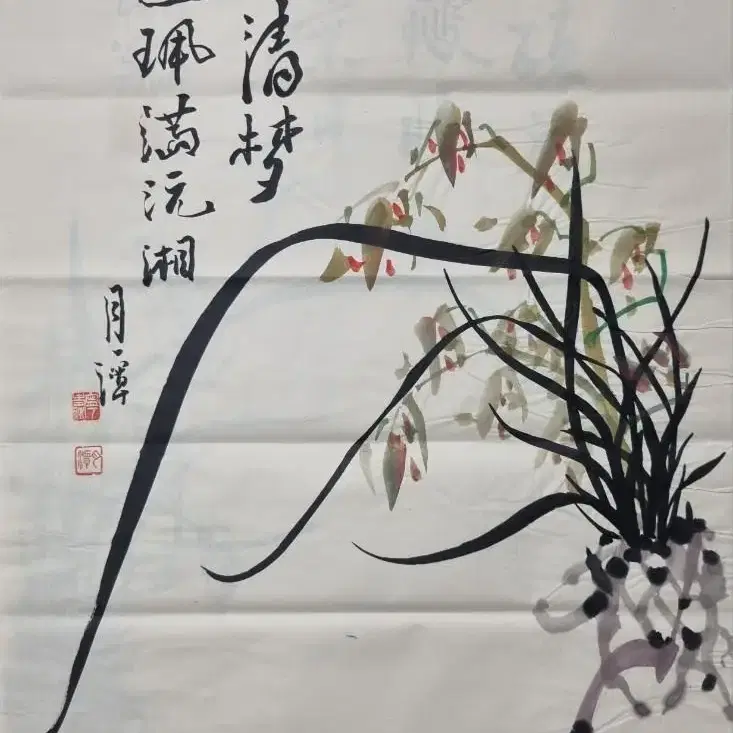 清梦
珮满沅湘
月潭